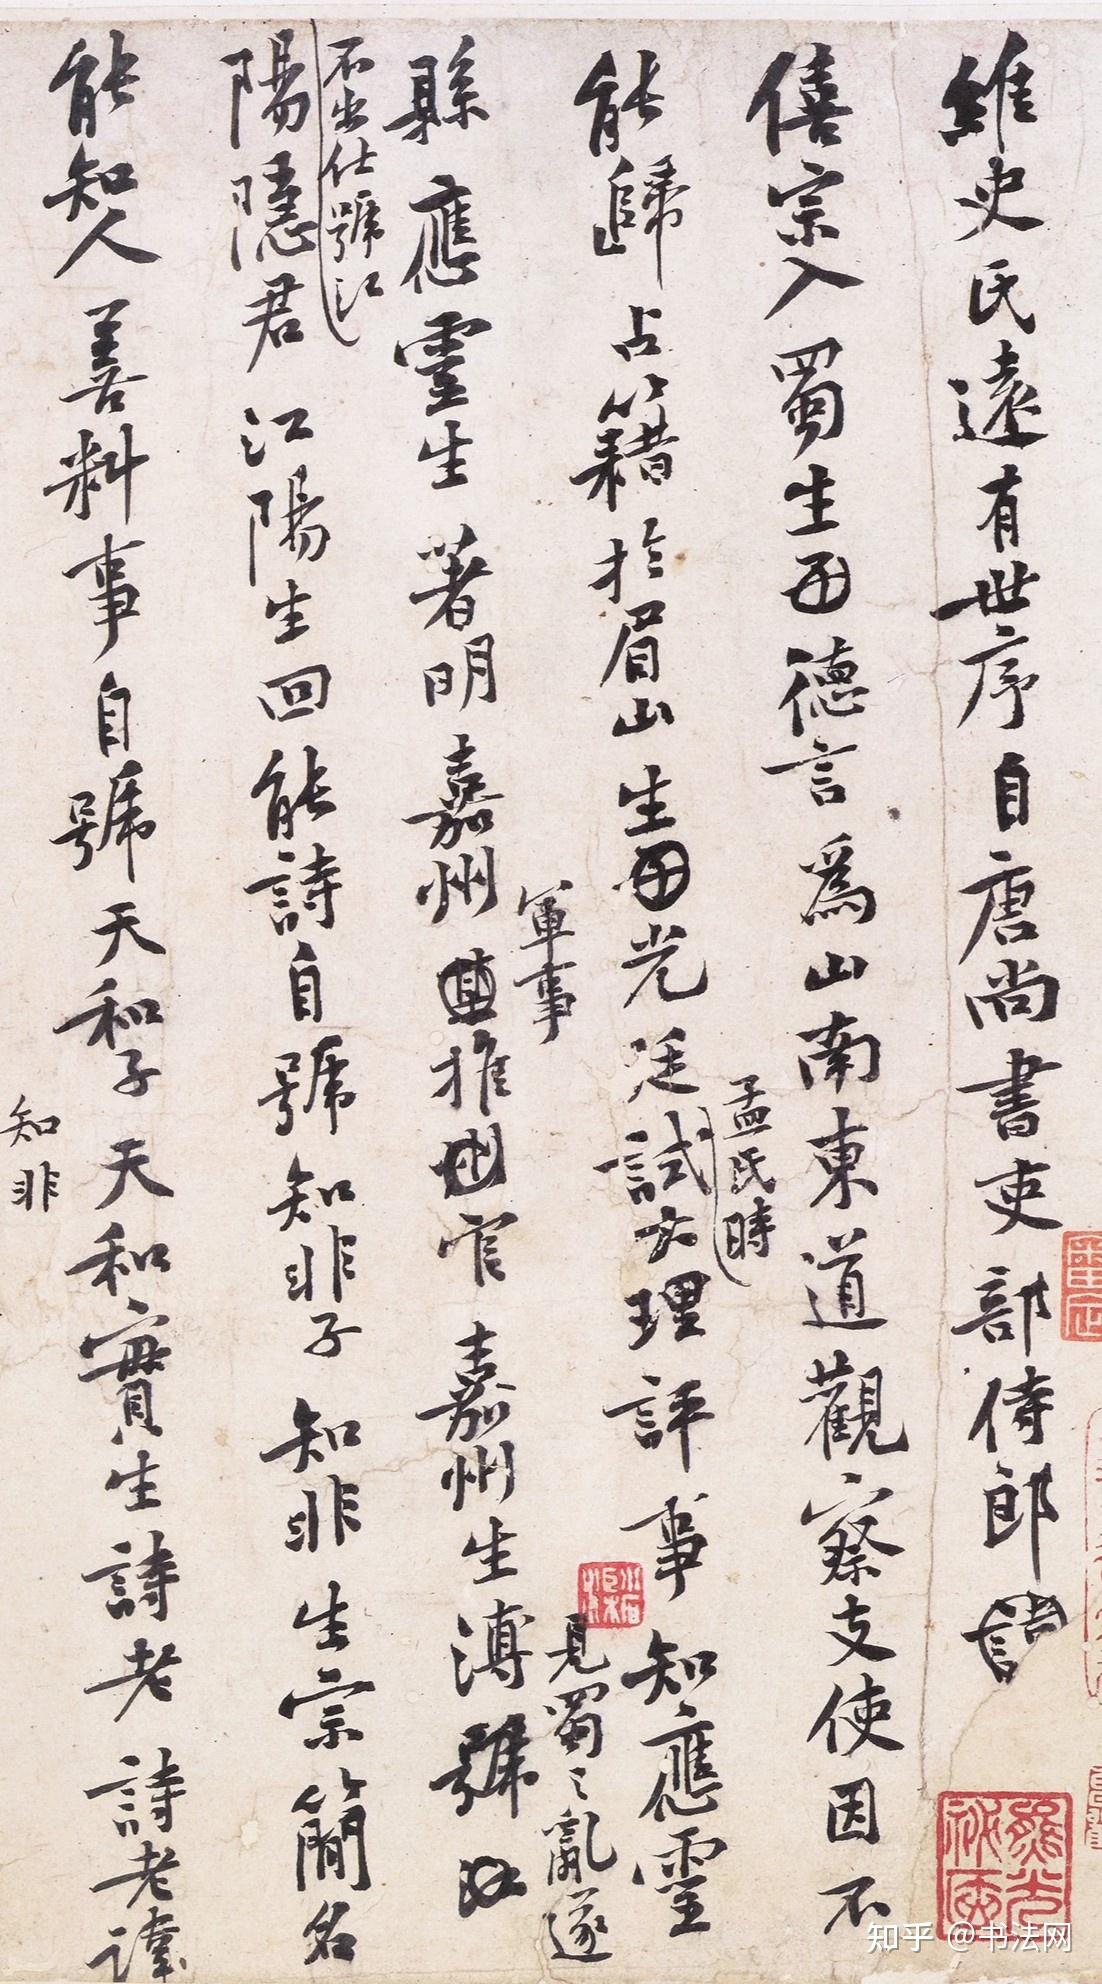 維史氏遠有世序自唐尚書吏部侍郎諱
僖宗入蜀生德言為山南東道觀察支使因不
能歸占籍於眉山生光廷試大理評事知應靈
孟氏時
縣應靈生著明嘉州推官嘉州生溥號
軍事
見蜀之亂遂
不出仕號江
陽隱君江陽生回能詩自號知非子知非生宗簡名
能知人善料事自號天和子天和實生詩老詩老諱
知非
知乎 @书法网